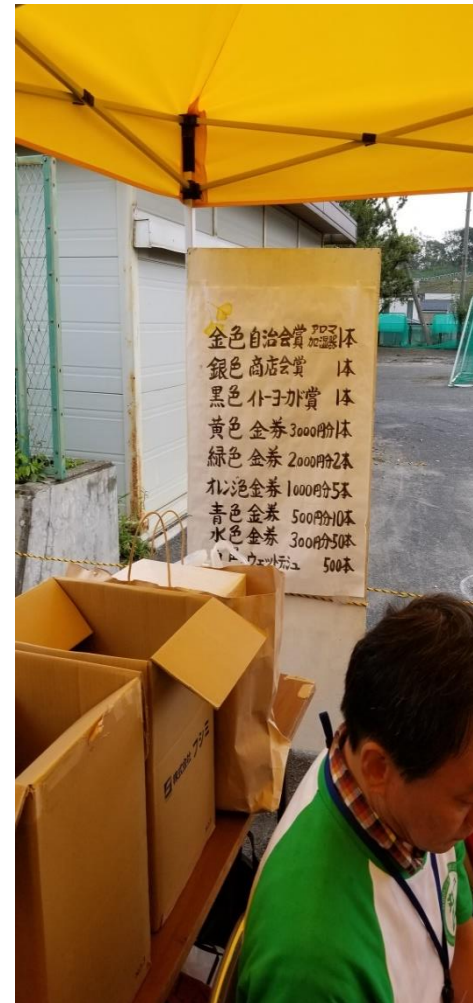 金色 自治会賞 アロマ加湿器 1本
銀色 商店会賞 1本
黒色 イトーヨーカドー賞 1本
黄色 金券 3000円分 1本
緑色 金券 2000円分 2本
オレンジ色 金券 1000円分 5本
青色 金券 500円分 10本
水色 金券 300円分 50本
ウェットティシュ 500本
株式会社 フシミ